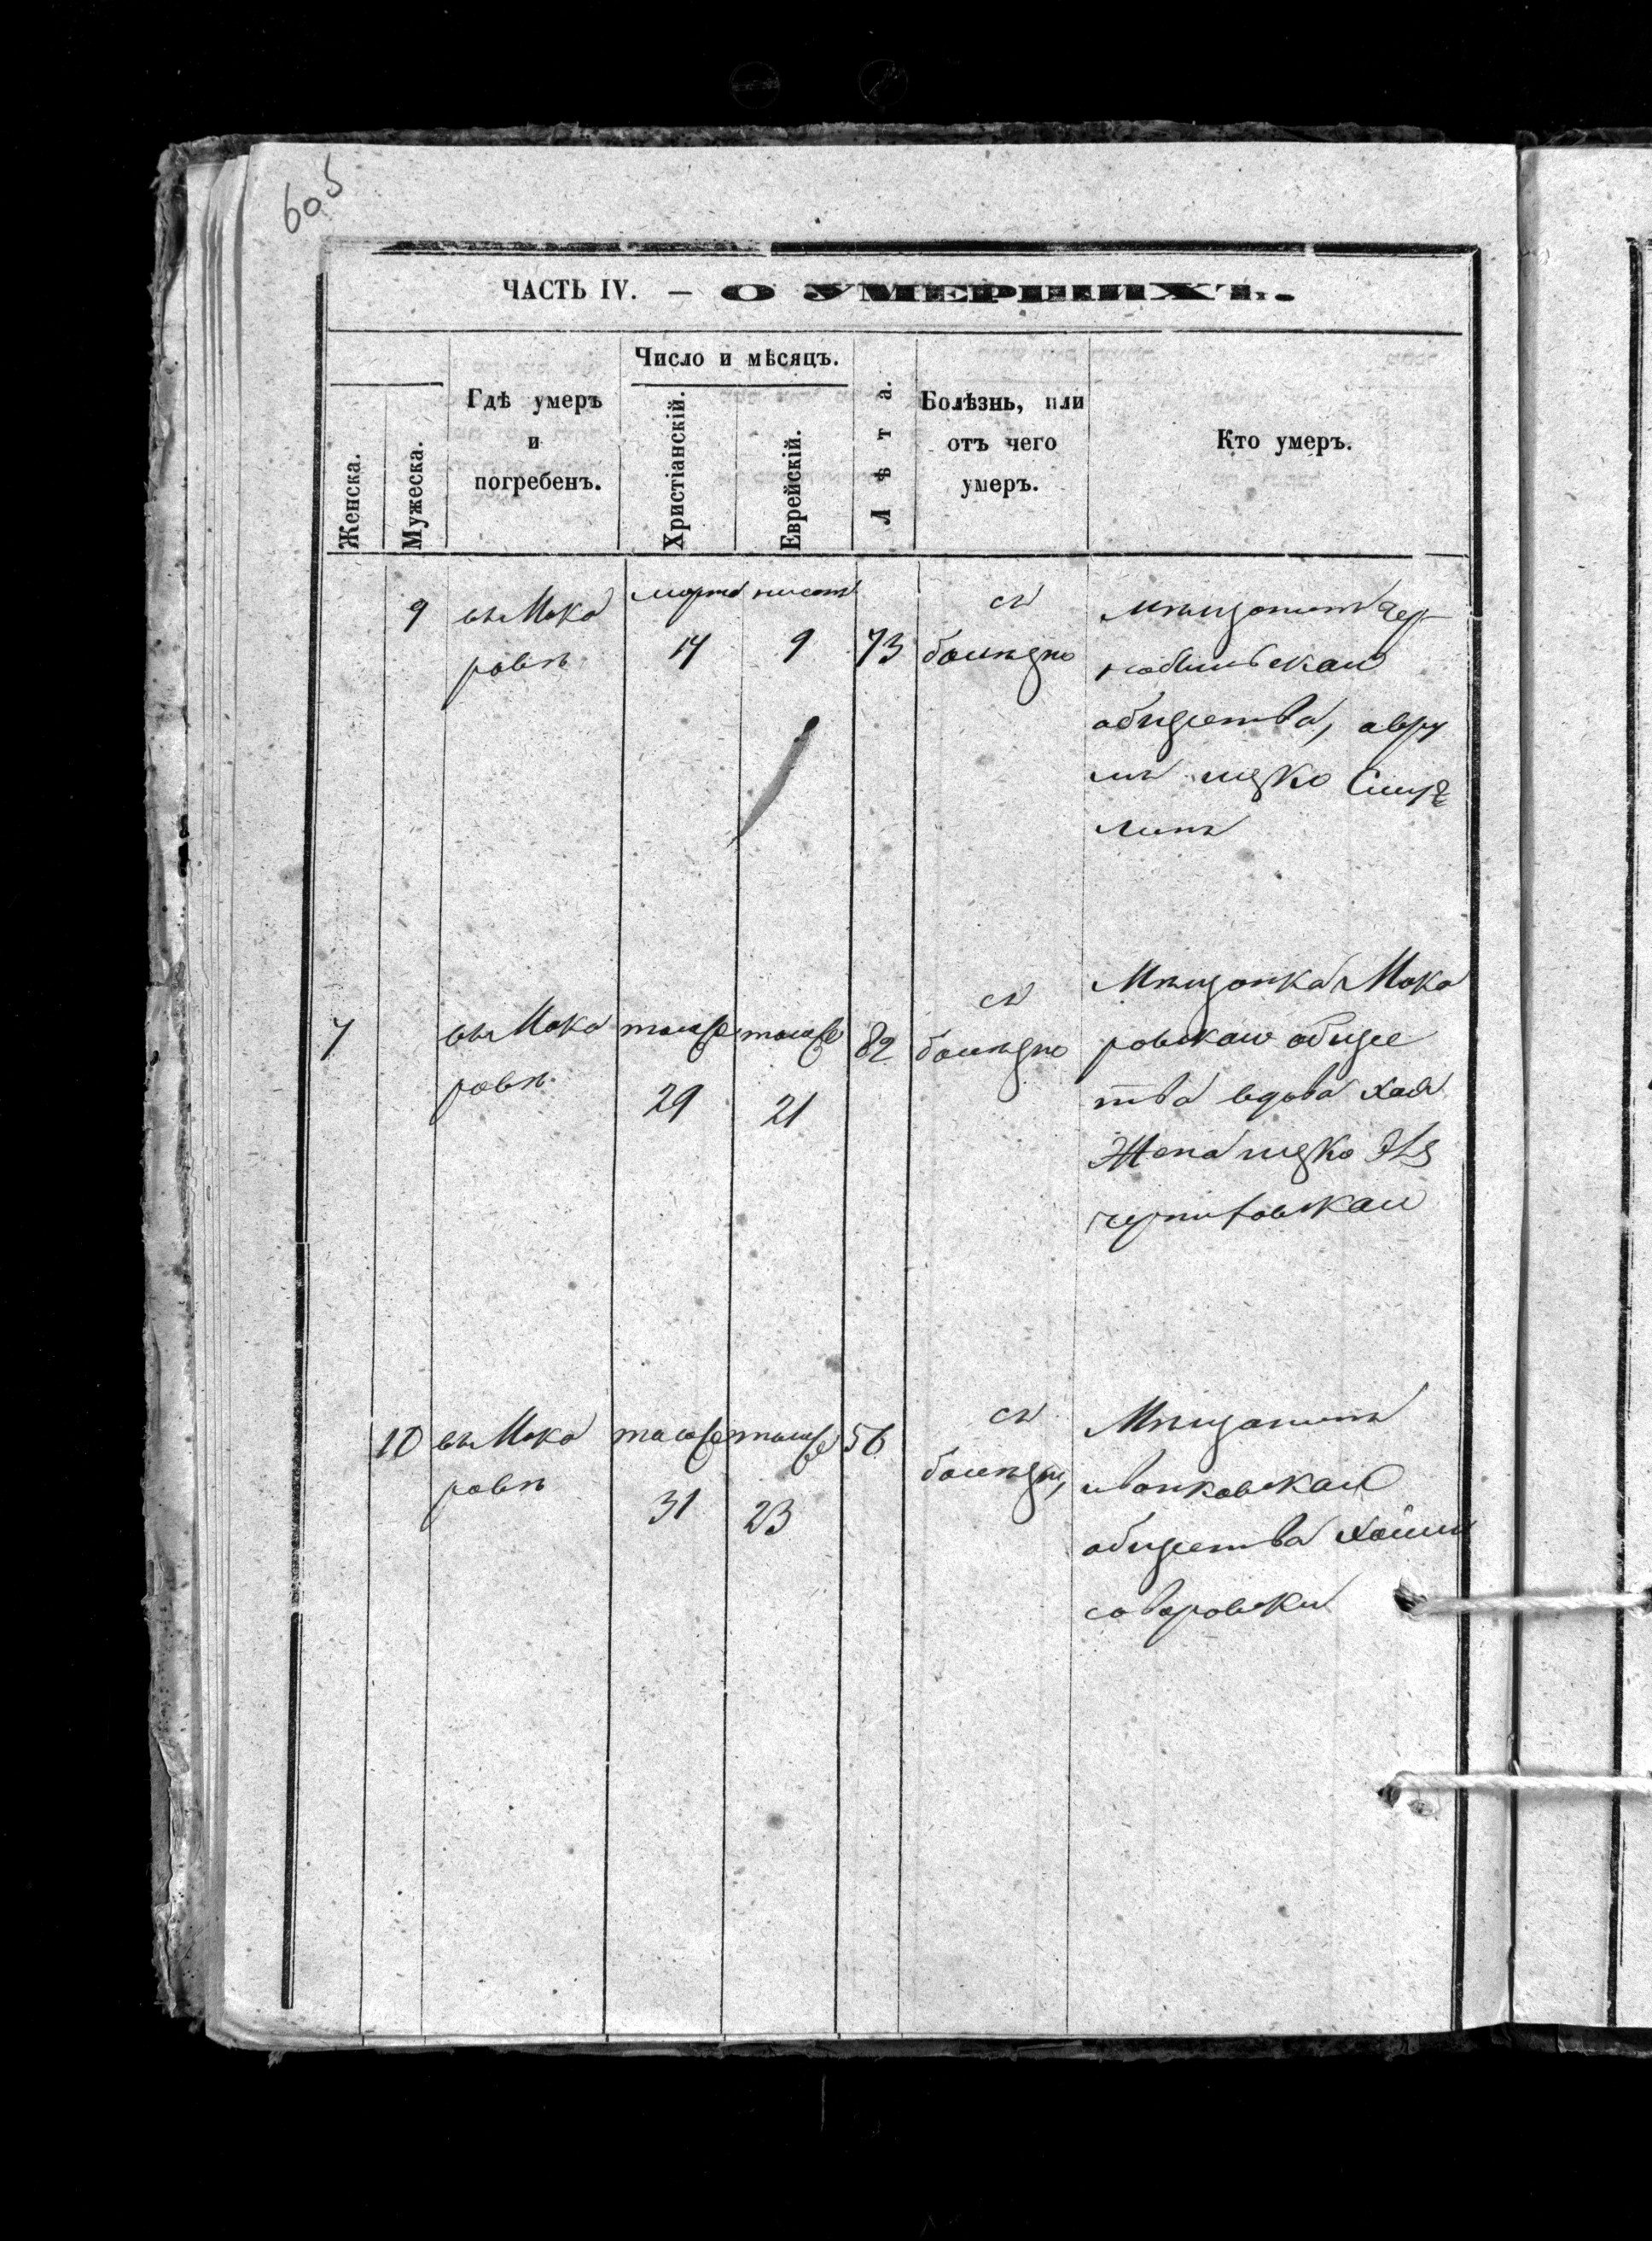 605
ЧАСТЬ IV. — О УМЕРШИХЪ.
Женска.
Мужеска.
Гдѣ умеръ
и
погребенъ.
Число и мѣсяцъ.
Христіанскій.
Еврейскій.
Лѣта.
Болѣзнь, или
отъ чего
умеръ.
Кто умеръ.
9
въ Мака
ровѣ
марта
14
нисанъ
9
73
съ
болѣзно
мѣщанинъ Чер
нобильскаго
общества, авру
мъ ицко
линъ
7
въ Мака
ровѣ
тогоже
29
тогоже
21
82
съ
болѣзно
Мѣщанка Мака
ровскаго обще
тва вдова хая
Жена ицко
черниховскаи
10
въ Мака
ровѣ
тогоже
31
тогоже
23
56
съ
болѣзни,
Мѣщанинъ
иванковскаго
общества хаимъ